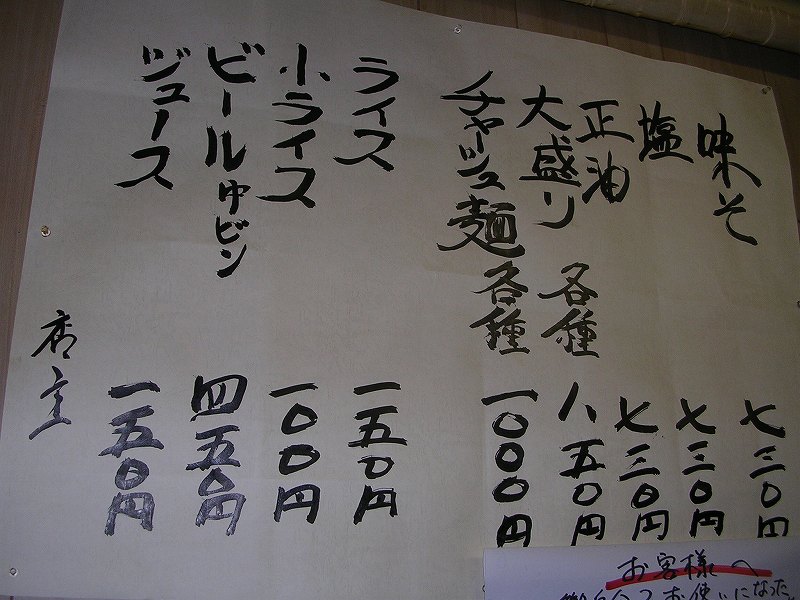 味そ 七三〇円
塩 七三〇円
正油 七三〇円
大盛り 各種 八五〇円
チャーシュー麺 各種 一〇〇〇円
ライス 一五〇円
小ライス 一〇〇円
ビール中ビン 四五〇円
ジュース 一五〇円
店主
お客様へ
お使いになった